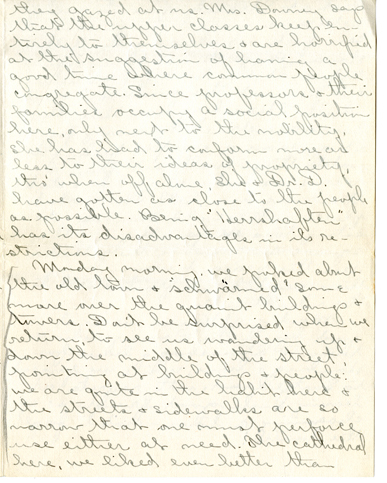 they gazed at us. Mrs. Downey says
that the upper classes keep en-
tirely to themselves & are horrified
at the suggestion of having a
good time where common people
congregate. Since professors & their
families occupy a social position
here, only next to the nobility,
she has had to conform more or
less to their ideas of propriety,
tho' when off alone, she & Dr. D.
have gotten as close to the people
as possible. Being "Herrshaften"
has its disadvantages in its re-
strictions.
Monday morning we poked about
the old town & "schwärmed" some
more over the quaint buildings &
towers. Don't be surprised when we
return, to see us wandering up &
down the middle of the street,
pointing at buildings & people:
we are quite in the habit here &
the streets & sidewalks are so
narrow that one must perforce
use either at need. The cathedral
here, we liked even better than